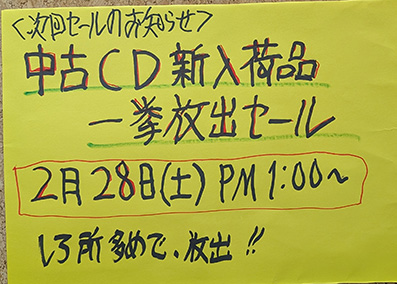 ＜次回セールのお知らせ＞
中古CD新入荷品
一挙放出セール
2月28日(土) PM 1:00〜
レア所多めで、放出!!